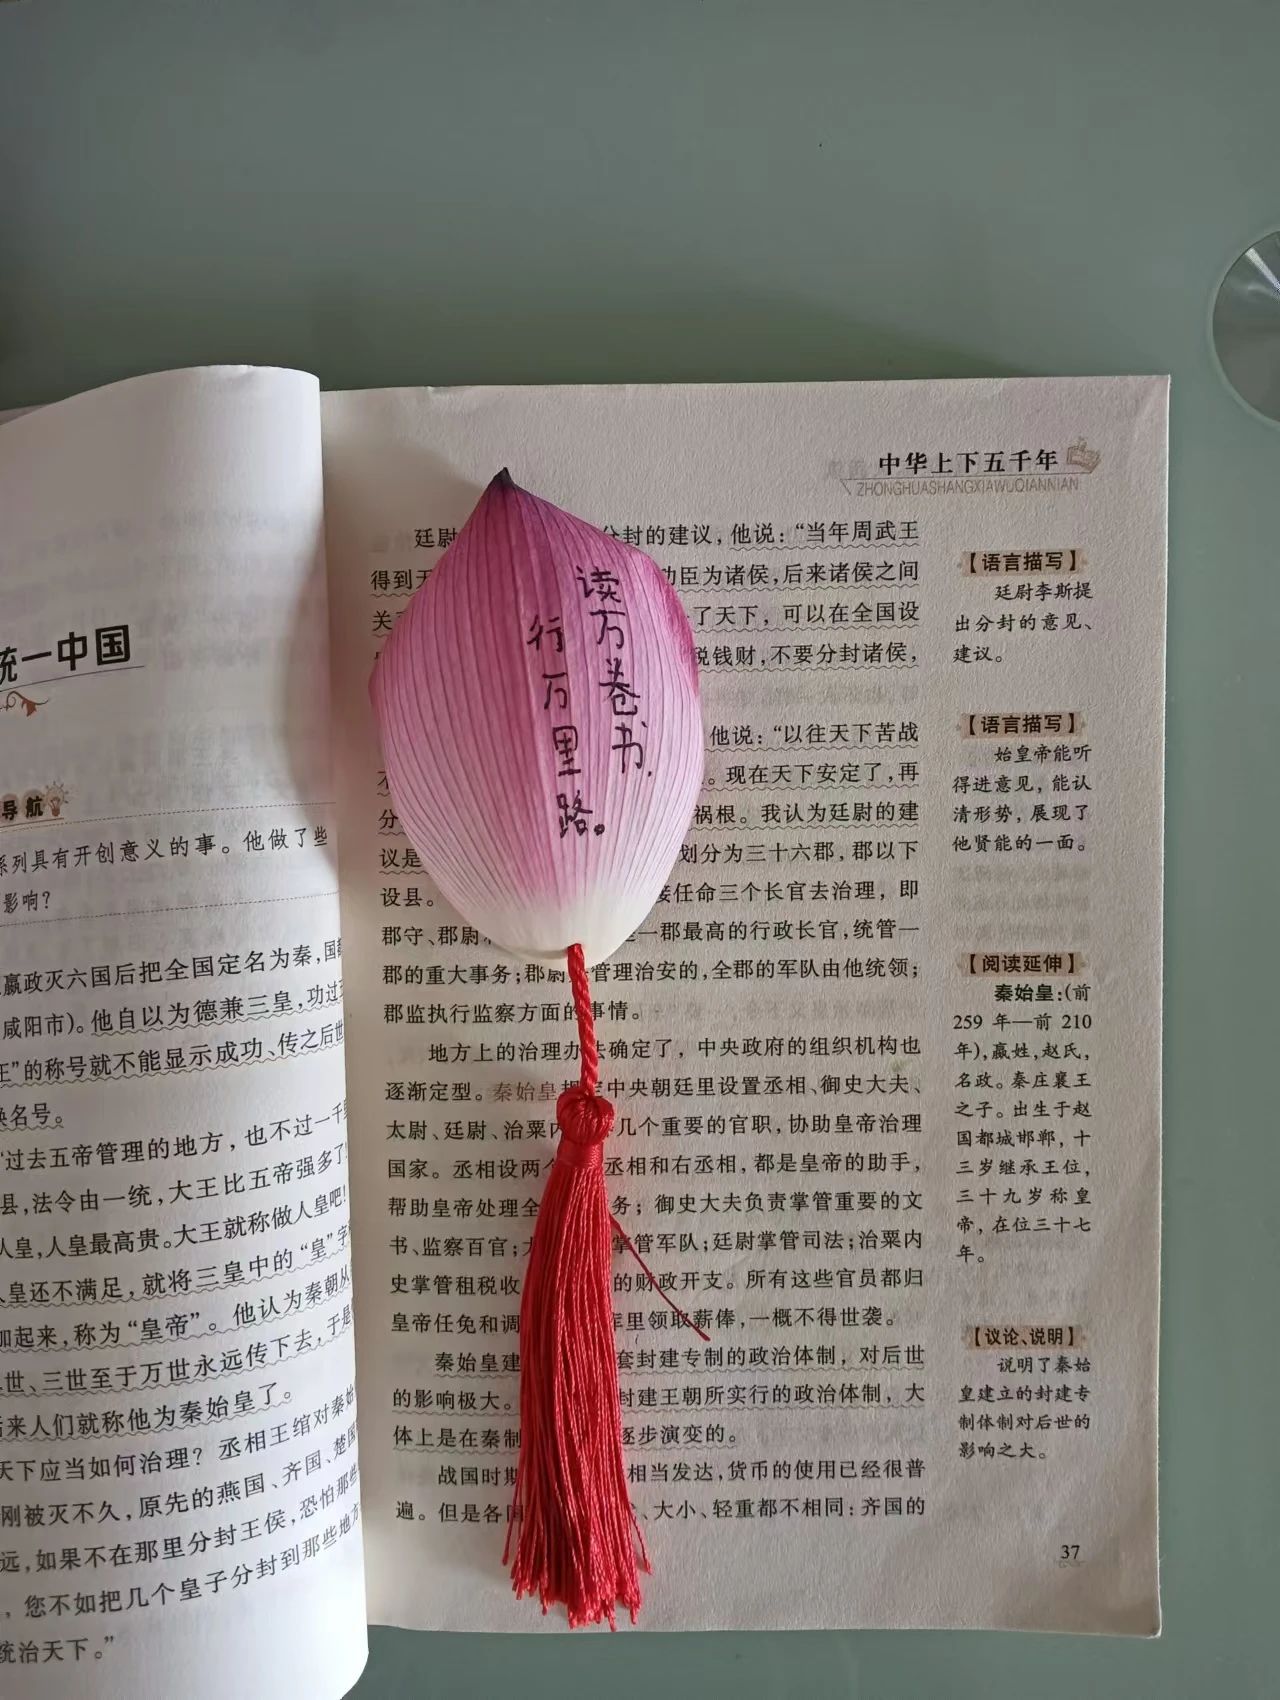 统一中国
导航
系列具有开创意义的事。他做了些
影响?
嬴政灭六国后把全国定名为秦,国
咸阳市)。他自以为德兼三皇,功过
王”的称号就不能显示成功、传之后世
名号。
“过去五帝管理的地方,也不过一千
县,法令由一统,大王比五帝强多了
人皇,人皇最高贵。大王就称做人皇吧!
皇还不满足,就将三皇中的“皇”字
加起来,称为“皇帝”。他认为秦朝从
世、三世至于万世永远传下去,于是
后来人们就称他为秦始皇了。
天下应当如何治理?丞相王绾对秦始
刚被灭不久,原先的燕国、齐国、楚国
远,如果不在那里分封王侯,恐怕那些
,您不如把几个皇子分封到那些地方
统治天下。”
中华上下五千年
ZHONGHUASHANGXIAWUQIANNIAN
读万卷书,
行万里路。
廷尉 分封的建议,他说:“当年周武王
得到天 功臣为诸侯,后来诸侯之间
关 了天下,可以在全国设
税钱财,不要分封诸侯,
他说:“以往天下苦战
不 。现在天下安定了,再
分 祸根。我认为廷尉的建
议是 划分为三十六郡,郡以下
设县。 接任命三个长官去治理,即
郡守、郡尉 是一郡最高的行政长官,统管一
郡的重大事务;郡尉 管理治安的,全郡的军队由他统领;
郡监执行监察方面的事情。
地方上的治理办法确定了,中央政府的组织机构也
逐渐定型。秦始皇规定中央朝廷里设置丞相、御史大夫、
太尉、廷尉、治粟内 几个重要的官职,协助皇帝治理
国家。丞相设两个 丞相和右丞相,都是皇帝的助手,
帮助皇帝处理全 务;御史大夫负责掌管重要的文
书、监察百官; 掌管军队;廷尉掌管司法;治粟内
史掌管租税收 的财政开支。所有这些官员都归
皇帝任免和调 库里领取薪俸,一概不得世袭。
秦始皇建 套封建专制的政治体制,对后世
的影响极大。 封建王朝所实行的政治体制,大
体上是在秦制 逐步演变的。
战国时期 相当发达,货币的使用已经很普
遍。但是各国 、大小、轻重都不相同:齐国的
【语言描写】
廷尉李斯提
出分封的意见、
建议。
【语言描写】
始皇帝能听
得进意见,能认
清形势,展现了
他贤能的一面。
【阅读延伸】
秦始皇:(前
259 年—前 210
年),嬴姓,赵氏,
名政。秦庄襄王
之子。出生于赵
国都城邯郸,十
三岁继承王位,
三十九岁称皇
帝,在位三十七
年。
【议论、说明】
说明了秦始
皇建立的封建专
制体制对后世的
影响之大。
37